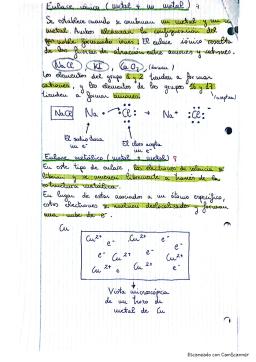 Enlace iónico (metal + no metal)
Se establece cuando se combinan un metal y un no
metal. Ambos alcanzan la configuración del
gas noble formando iones. El enlace iónico resulta
de las fuerzas de atracción entre aniones y cationes.
NaCl KI CaO
Los elementos del grupo 1 y 2 tienden a formar
cationes, y los elementos de los grupos 16 y 17
tienden a formar aniones. (aceptan)
NaCl Na Cl Na+ Cl-
El sodio
un e-
El cloro acepta
un e-
Enlace metálico (metal + metal)
En este tipo de enlace, los electrones de valencia se
liberan y se mueven libremente a través de la
estructura metálica.
En lugar de estar asociados a un átomo específico,
estos electrones se mueven deslocalizados y forman
una nube de e-.
Cu
Cu2+ e- Cu2+ e- Cu2+
e- e- e-
Cu2+ e- Cu2+ e-
Vista microscópica
de un trozo de
metal de Cu
Escaneado con CamScanner